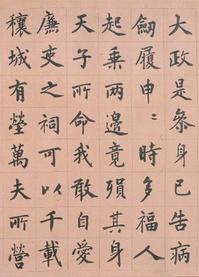 大政是叅身已告病
劒履申〻時多福人
起乗两邊竟殞其身
天子所命我敢自愛
廉吏之祠可以千載
穰城有塋萬夫所營